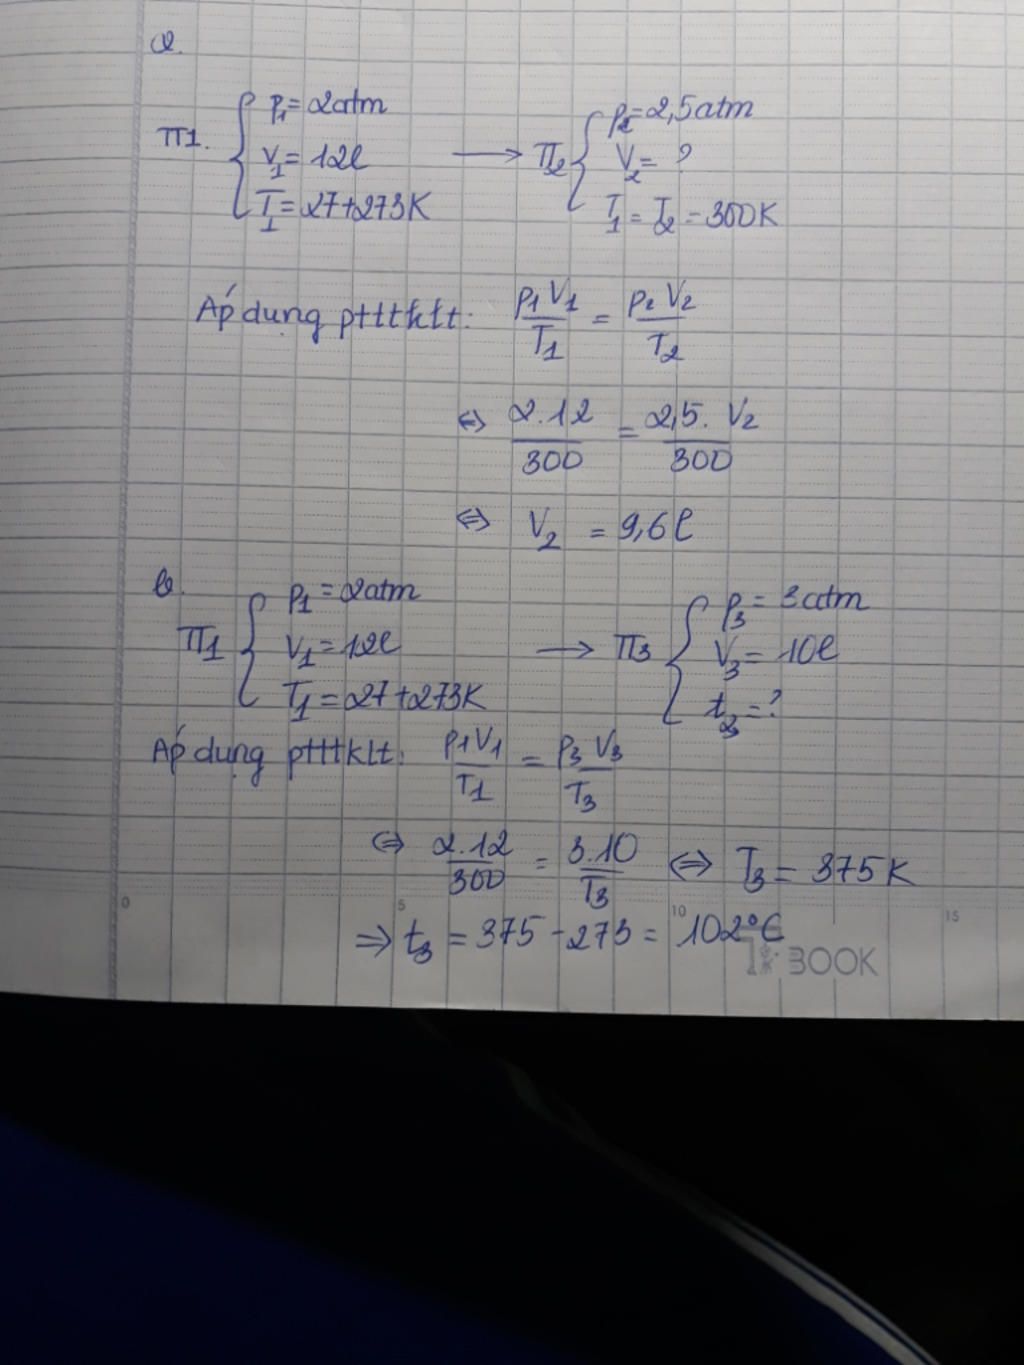 a.
TT1. { p₁ = 2atm V₁ = 12l T₁ = 27+273K → TT2 { p₂ = 2,5atm V₂ = ? T₁ = T₂ = 300K
Áp dụng ptttklt: p₁V₁/T₁ = p₂V₂/T₂
⇔ 2.12/300 = 2,5.V₂/300
⇔ V₂ = 9,6l
b.
TT1 { p₁ = 2atm V₁ = 12l T₁ = 27+273K → TT3 { p₃ = 3atm V₃ = 10l t₃ = ?
Áp dụng ptttklt: p₁V₁/T₁ = p₃V₃/T₃
⇔ 2.12/300 = 3.10/T₃ ⇔ T₃ = 375K
0 5 10 15
⇒ t₃ = 375 - 273 = 102°C
BOOK